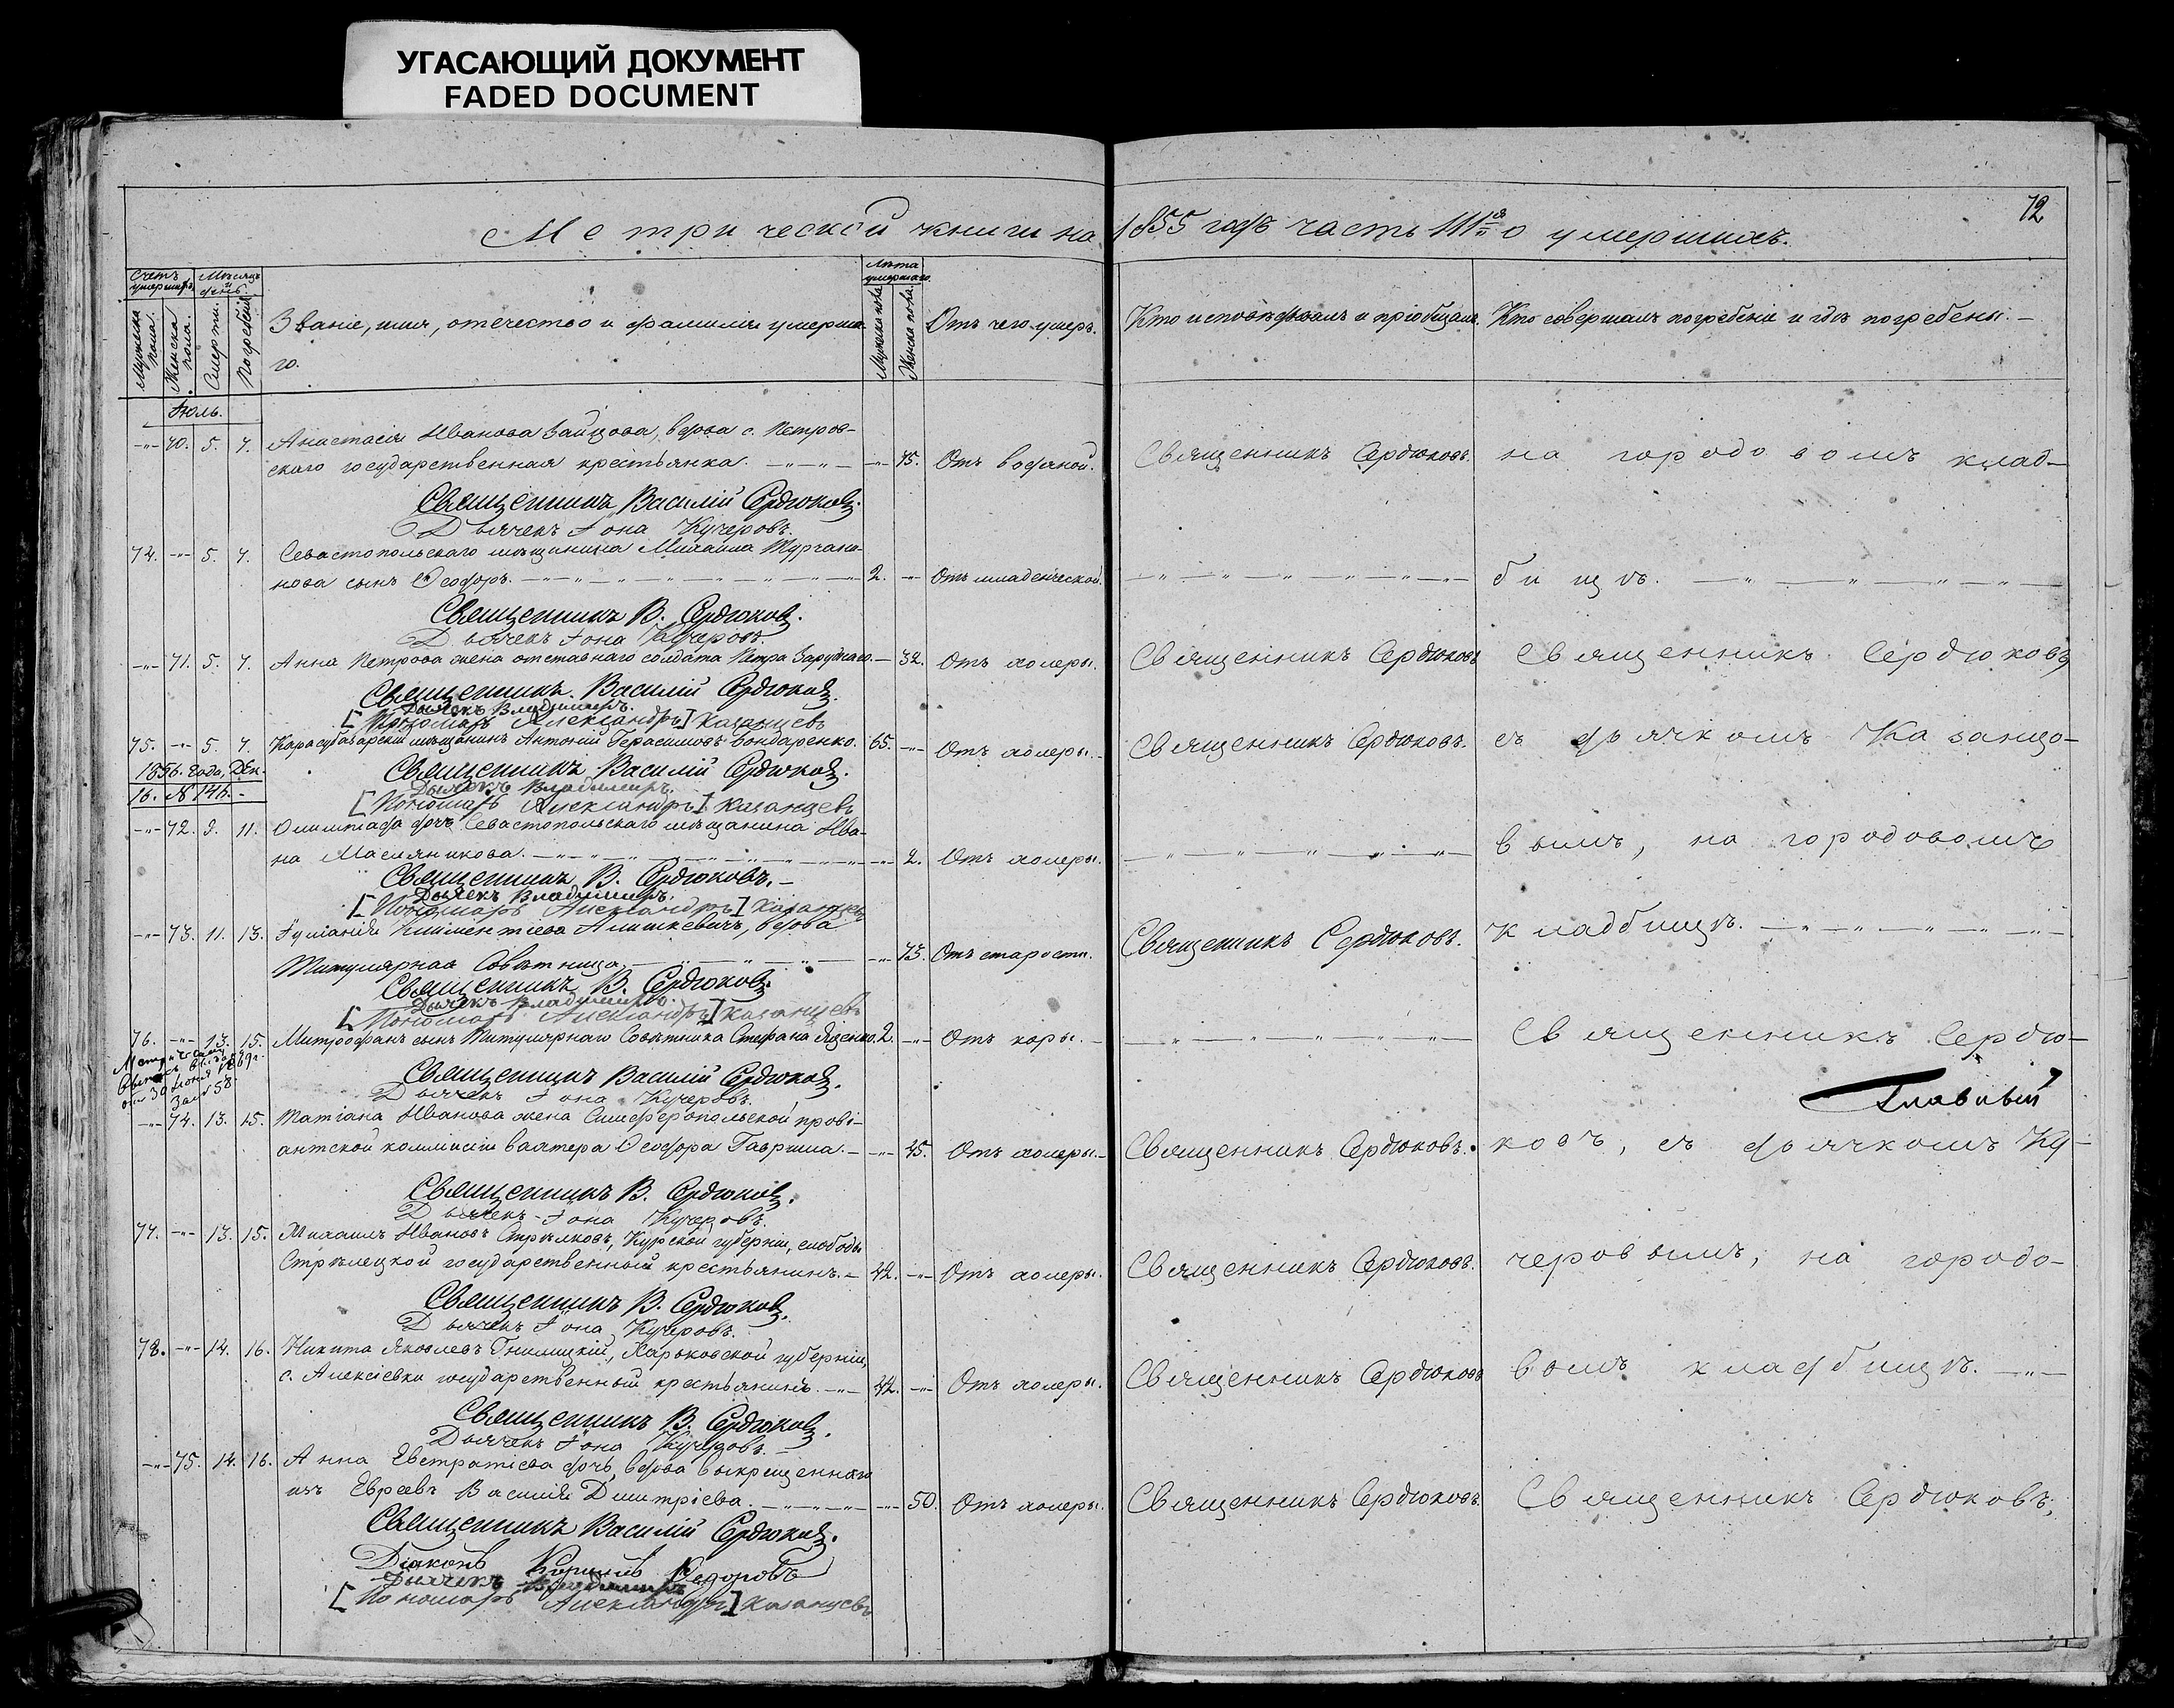 УГАСАЮЩИЙ ДОКУМЕНТ
FADED DOCUMENT
72
Метрической книги на 1855 годъ часть III.я о умершихъ.
Счетъ умершихъ. Мѣсяцъ и день. Лѣта умершаго.
Мужеска пола. Женска пола. Смерти. Погребенія. Званіе, имя, отечество и фамилія умерша- Мужеска пола. Женска пола. Отъ чего умеръ. Кто исповѣдывалъ и пріобщалъ. Кто совершалъ погребеніе и гдѣ погребены. –
го.
Іюль.
-"- 70. 5. 7. Анастасія Иванова Зайцова, вдова с. Петров-
скаго государственная крестьянка. -"- 75. Отъ водяной. Священникъ Сердюковъ. на городовомъ клад-
Священникъ Василій Сердюковъ.
Дьячекъ Іона Кучеровъ.
74. -"- 5. 7. Севастопольскаго мѣщанина Михаила Турчани-
нова сынъ Ѳеодоръ. 2. -"- Отъ младенческой. бищѣ.
Священникъ В. Сердюковъ.
Дьячекъ Іона Кучеровъ.
-"- 71. 5. 7. Анна Петрова жена отставнаго солдата Петра Заруднаго. – 32. Отъ холеры. Священникъ Сердюковъ Священникъ Сердюковъ
Священникъ Василій Сердюковъ.
Дьячекъ Владимиръ.
[Пономарь Александръ] Казанцевъ
75. -"- 5. 7. Карасубазарскій мѣщанинъ Антоній Герасимовъ Бондаренко. 65. -"- Отъ холеры. Священникъ Сердюковъ. съ дьячкомъ Казанцо-
1856. года, Дек. Священникъ Василій Сердюковъ.
16. № 146. – Дьячекъ Владимиръ.
[Пономарь Александръ] Казанцевъ
-"- 72. 9. 11. Олимпіада дочь Севастопольскаго мѣщанина Ива-
на Масляникова. -"- 2. Отъ холеры. вымъ, на городовомъ
Священникъ В. Сердюковъ. –
Дьячекъ Владимиръ.
[Пономарь Александръ] Казанцевъ
-"- 73. 11. 13. Іуліанія Климентіева Алишкевичъ, вдова
Титулярная Совѣтница. -"- 73. Отъ старости. Священникъ Сердюковъ. кладбищѣ.
Священникъ В. Сердюковъ.
Дьячекъ Владимиръ.
[Пономарь Александръ] Казанцевъ
76. -"- 13. 15. Митрофанъ сынъ Титулярнаго Совѣтника Стефана Яценко. 2. -"- Отъ коры. – Священникъ Сердю-
Священникъ Василій Сердюковъ.
Дьячекъ Іона Кучеровъ.
-"- 74. 13. 15. Татіана Иванова жена Симферопольской прові-
антской коммисіи вахтера Ѳеодора Гаврила. – -"- 45. Отъ холеры. – Священникъ Сердюковъ. ковъ, съ дьячкомъ Ку-
Священникъ В. Сердюковъ.
Дьячекъ Іона Кучеровъ.
77. -"- 13. 15. Михаилъ Ивановъ Стрѣлковъ, Курской губерніи, слободы
Стрѣлецкой государственный крестьянинъ. – 42. -"- Отъ холеры. Священникъ Сердюковъ. черовымъ, на городо-
Священникъ В. Сердюковъ.
Дьячекъ Іона Кучеровъ.
78. -"- 14. 16. Никита Яковлевъ Гнилицкій, Харьковской губерніи,
с. Алексіевки государственный крестьянинъ. 42. -"- Отъ холеры. Священникъ Сердюковъ вомъ кладбищѣ.
Священникъ В. Сердюковъ.
Дьячекъ Іона Кучеровъ.
-"- 75. 14. 16. Анна Евстратіева дочь, вдова выкрещеннаго
изъ Евреевъ Василія Димитріева. -"- 50. Отъ холеры. Священникъ Сердюковъ. Священникъ Сердюковъ,
Священникъ Василій Сердюковъ.
Діаконъ Кириллъ Ѳедоровъ
Дьячекъ Владимиръ
[Пономарь Александръ] Казанцевъ